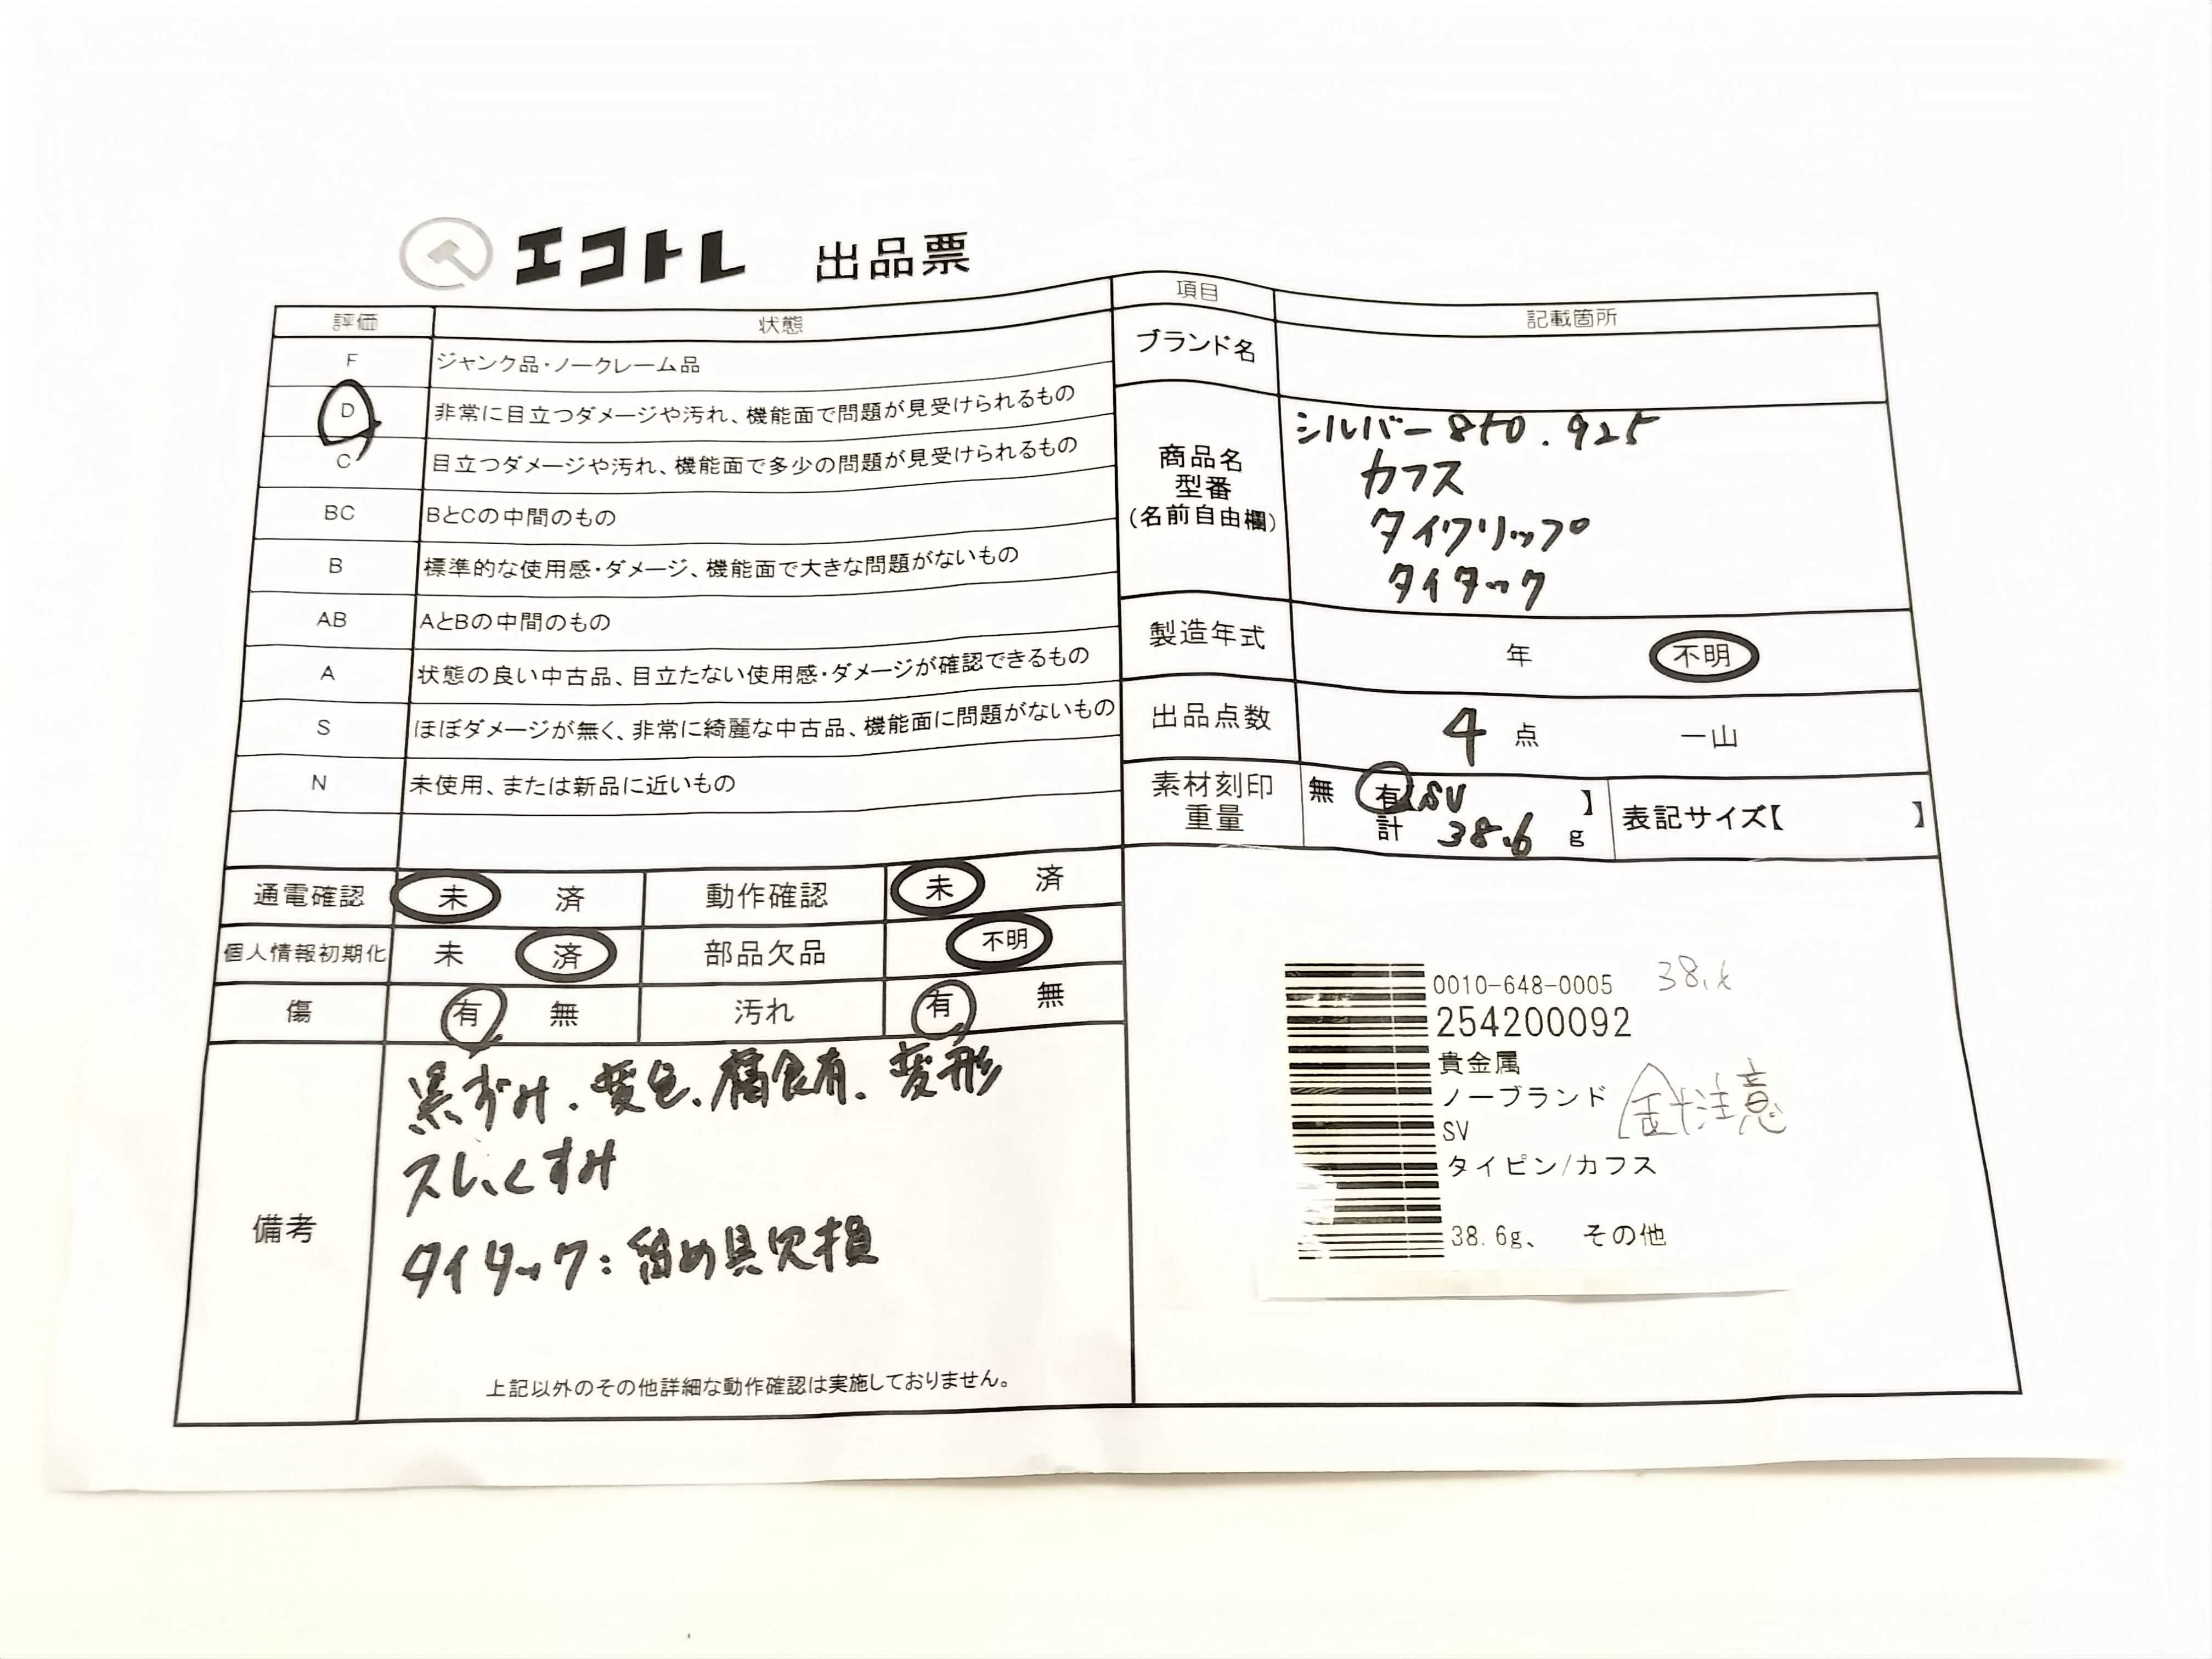 エコトレ 出品票
評価 状態
F ジャンク品・ノークレーム品
D 非常に目立つダメージや汚れ、機能面で問題が見受けられるもの
C 目立つダメージや汚れ、機能面で多少の問題が見受けられるもの
BC BとCの中間のもの
B 標準的な使用感・ダメージ、機能面で大きな問題がないもの
AB AとBの中間のもの
A 状態の良い中古品、目立たない使用感・ダメージが確認できるもの
S ほぼダメージが無く、非常に綺麗な中古品、機能面に問題がないもの
N 未使用、または新品に近いもの
通電確認 未 済 動作確認 未 済
個人情報初期化 未 済 部品欠品 不明
傷 有 無 汚れ 有 無
備考
黒ずみ、変色、腐食有、変形
スレ、くすみ
タイタック:留め具欠損
上記以外のその他詳細な動作確認は実施しておりません。
項目 記載箇所
ブランド名
商品名
型番
(名前自由欄)
シルバー850.925
カフス
タイクリップ
タイタック
製造年式 年 不明
出品点数 4 点 一山
素材刻印 無 有 SV 】
重量 計 38.6 g
表記サイズ【 】
0010-648-0005
254200092
貴金属
ノーブランド 針注意
SV
タイピン/カフス
38.6g、 その他